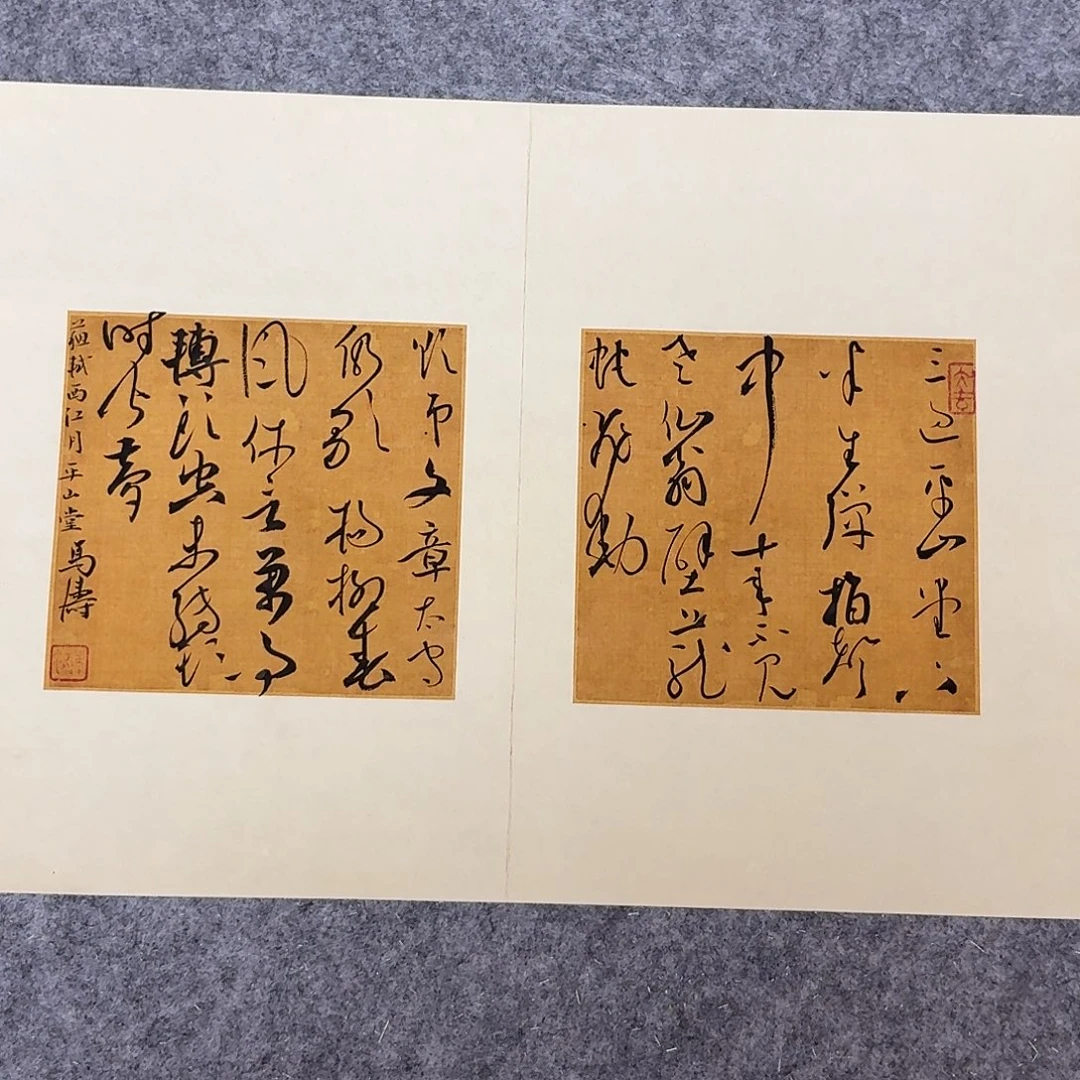 三過平山堂下
半生彈指聲
中十年不見
老仙翁壁上龍
蛇飛動
欲弔文章太守
仍歌楊柳春
風休言萬事
轉頭空未轉頭
時皆夢
蘇軾西江月平山堂馬濤